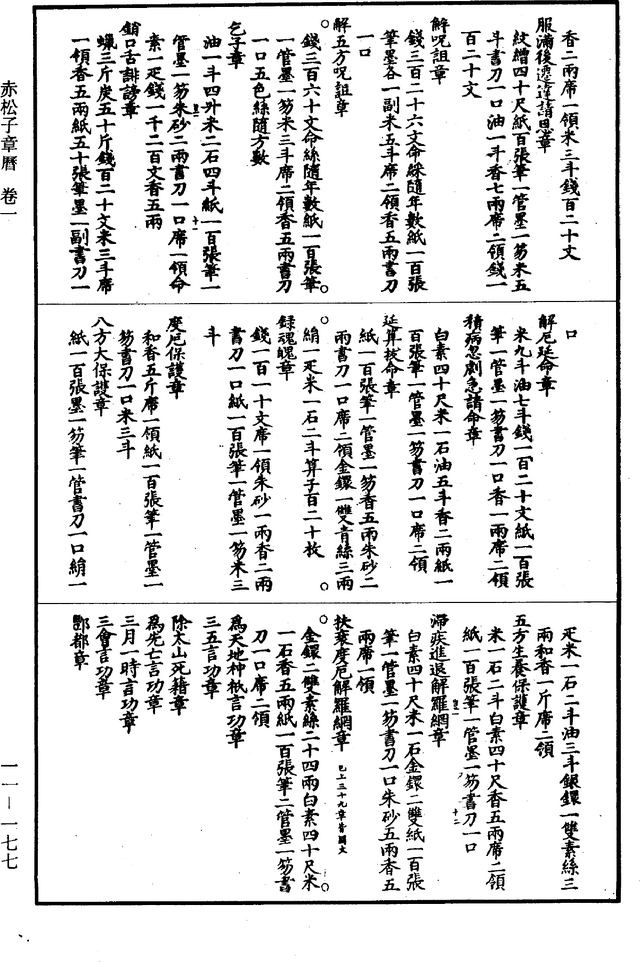 香二兩席一領米三斗錢百二十文
服滿後遷達請恩章
紋繒四十尺紙百張筆一管墨一笏米五
斗書刀一口油一斗香七兩席二領錢一
百二十文
解呪詛章
錢三百二十六文命綵隨年數紙一百張
筆墨各一副米五斗席二領香五兩書刀
一口
解五方呪詛章
錢三百六十文命絲隨年數紙一百張筆
一管墨一笏米三斗席二領香五兩書刀
一口五色絲隨方數
乞子章
油一斗四升米二石四斗紙一百張筆一
管墨一笏朱砂二兩書刀一口席一領命
素一疋錢一千二百文香五兩
銷口舌誹謗章
蠟三斤炭五十斤錢百二十文米三斗席
一領香五兩紙五十張筆墨一副書刀一
口
解厄延命章
米九斗油七斗錢一百二十文紙一百張
筆一管墨一笏書刀一口香一兩席二領
積病忽劇急請命章
白素四十尺米一石油五斗香二兩紙一
百張筆一管墨一笏書刀一口席二領
延算拔命章
紙一百張筆一管墨一笏香五兩朱砂二
兩書刀一口席二領金鐶一雙青絲三兩
絹一疋米一石二斗算子百二十枚
録魂魄章
錢一百一十文席一領朱砂一兩香二兩
書刀一口紙一百張筆一管墨一笏米三
斗
度厄保護章
和香五斤席一領紙一百張筆一管墨一
笏書刀一口米三斗
八方大保護章
紙一百張墨一笏筆一管書刀一口絹一
疋米一石二斗油三斗銀鐶一雙素絲三
兩和香一斤席二領
五方生養保護章
米一石二斗白素四十尺香五兩席二領
紙一百張筆一管墨一笏書刀一口
滯疾進退解羅網章
白素四十尺米一石金鐶二雙紙一百張
筆一管墨一笏書刀一口朱砂五兩香五
兩席一領
扶衰度厄解羅網章 已上三十九章皆闕文
金鐶二雙素絲二十四兩白素四十尺米
一石香五兩紙一百張筆二管墨一笏書
刀一口席二領
爲天地神祇言功章
三五言功章
除太山死籍章
爲先亡言功章
三月一時言功章
三會言功章
酆都章
赤松子章曆 卷一
一一—一七七